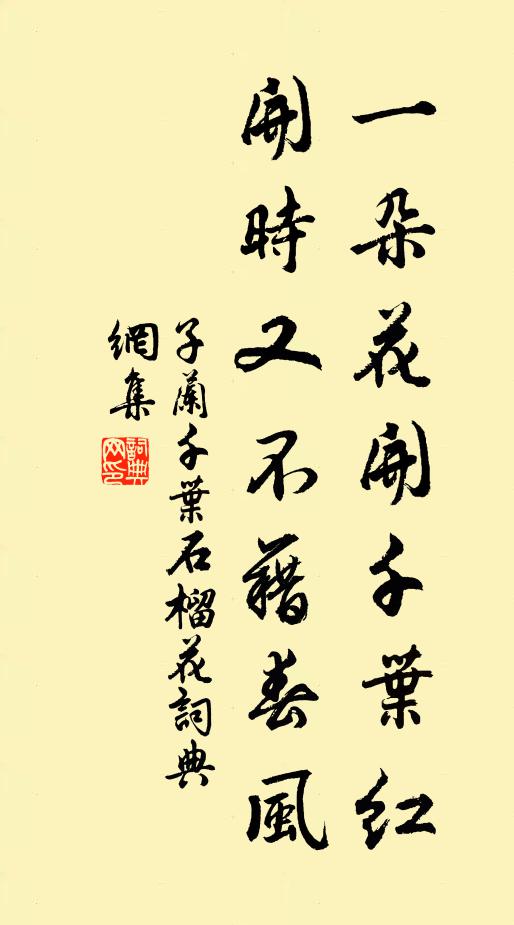 一朵花開千葉紅
開時又不藉春風
子蘭千葉石榴花詞典
網集
詞典
网印